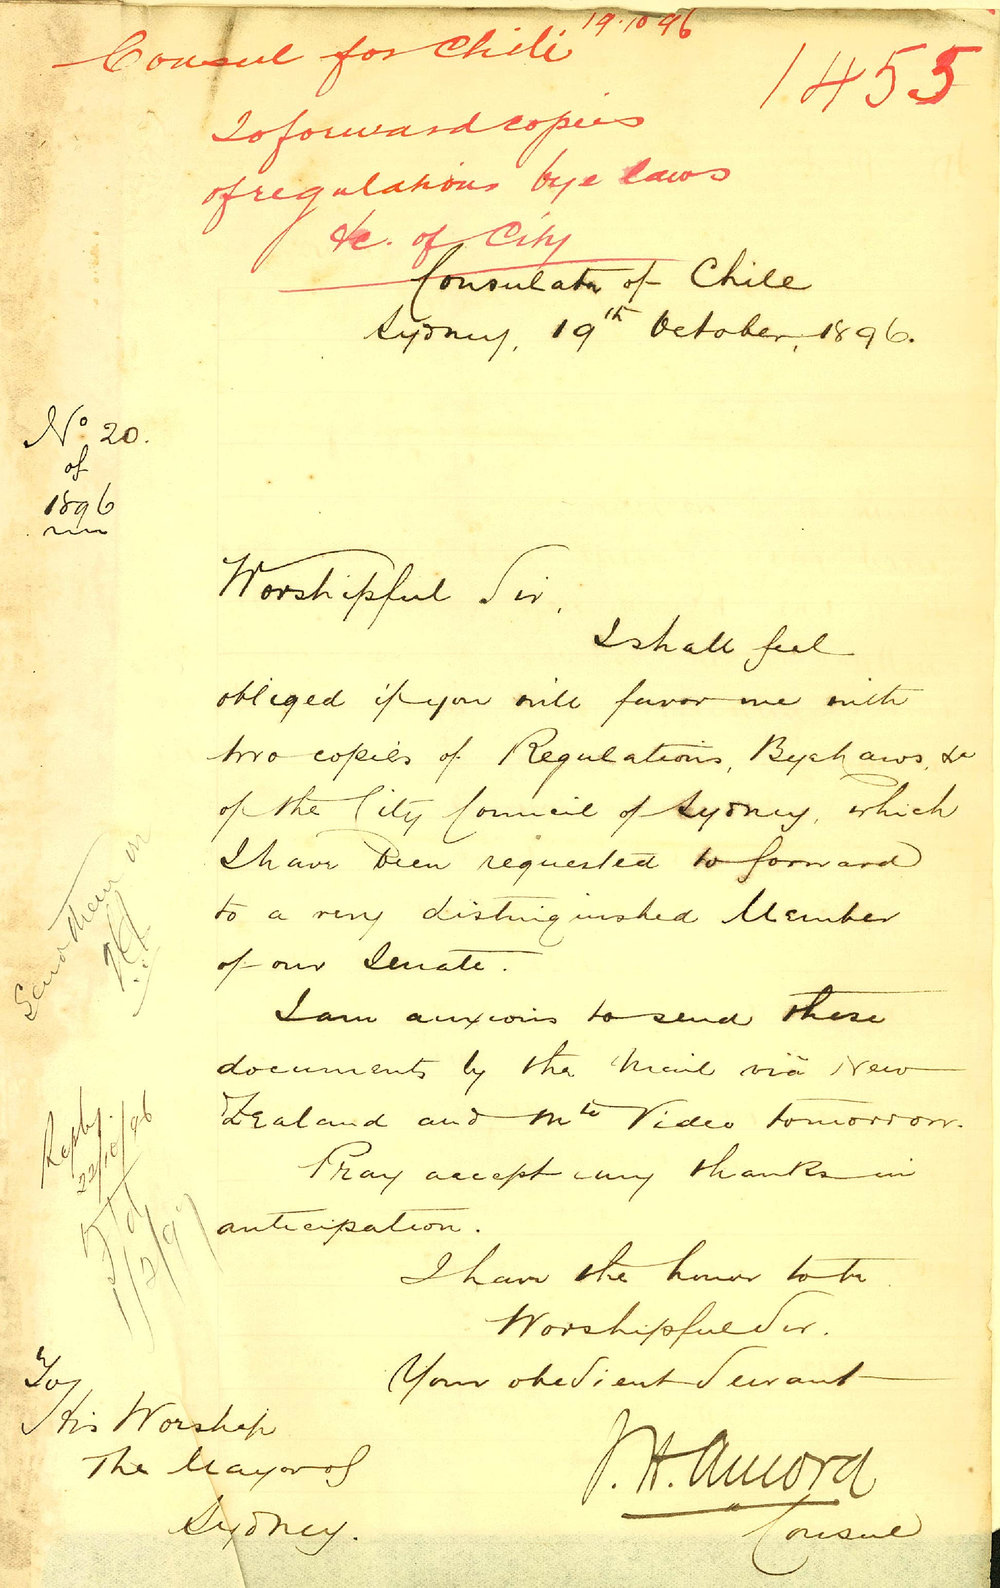 Consul for Chili 19.10 96
1455
To forward copies
of regulations bye laws
&c. of City
Consulate of Chile
Sydney, 19th October, 1896.
No 20.
of
1896
Worshipful Sir,
I shall feel
obliged if you will favor me with
two copies of Regulations, Bye Laws, &c
of the City Council of Sydney, which
I have been requested to forward
to a very distinguished Member
of our Senate.
I am anxious to send these
documents by the Mail viä New
Zealand and Mte Video tomorrow.
Pray accept my thanks in
anticipation.
I have the honor to be
Worshipful Sir.
Your obedient Servant
Consul
Send them on
Reply
22/10/96
To
His Worship
The Mayor of
Sydney.